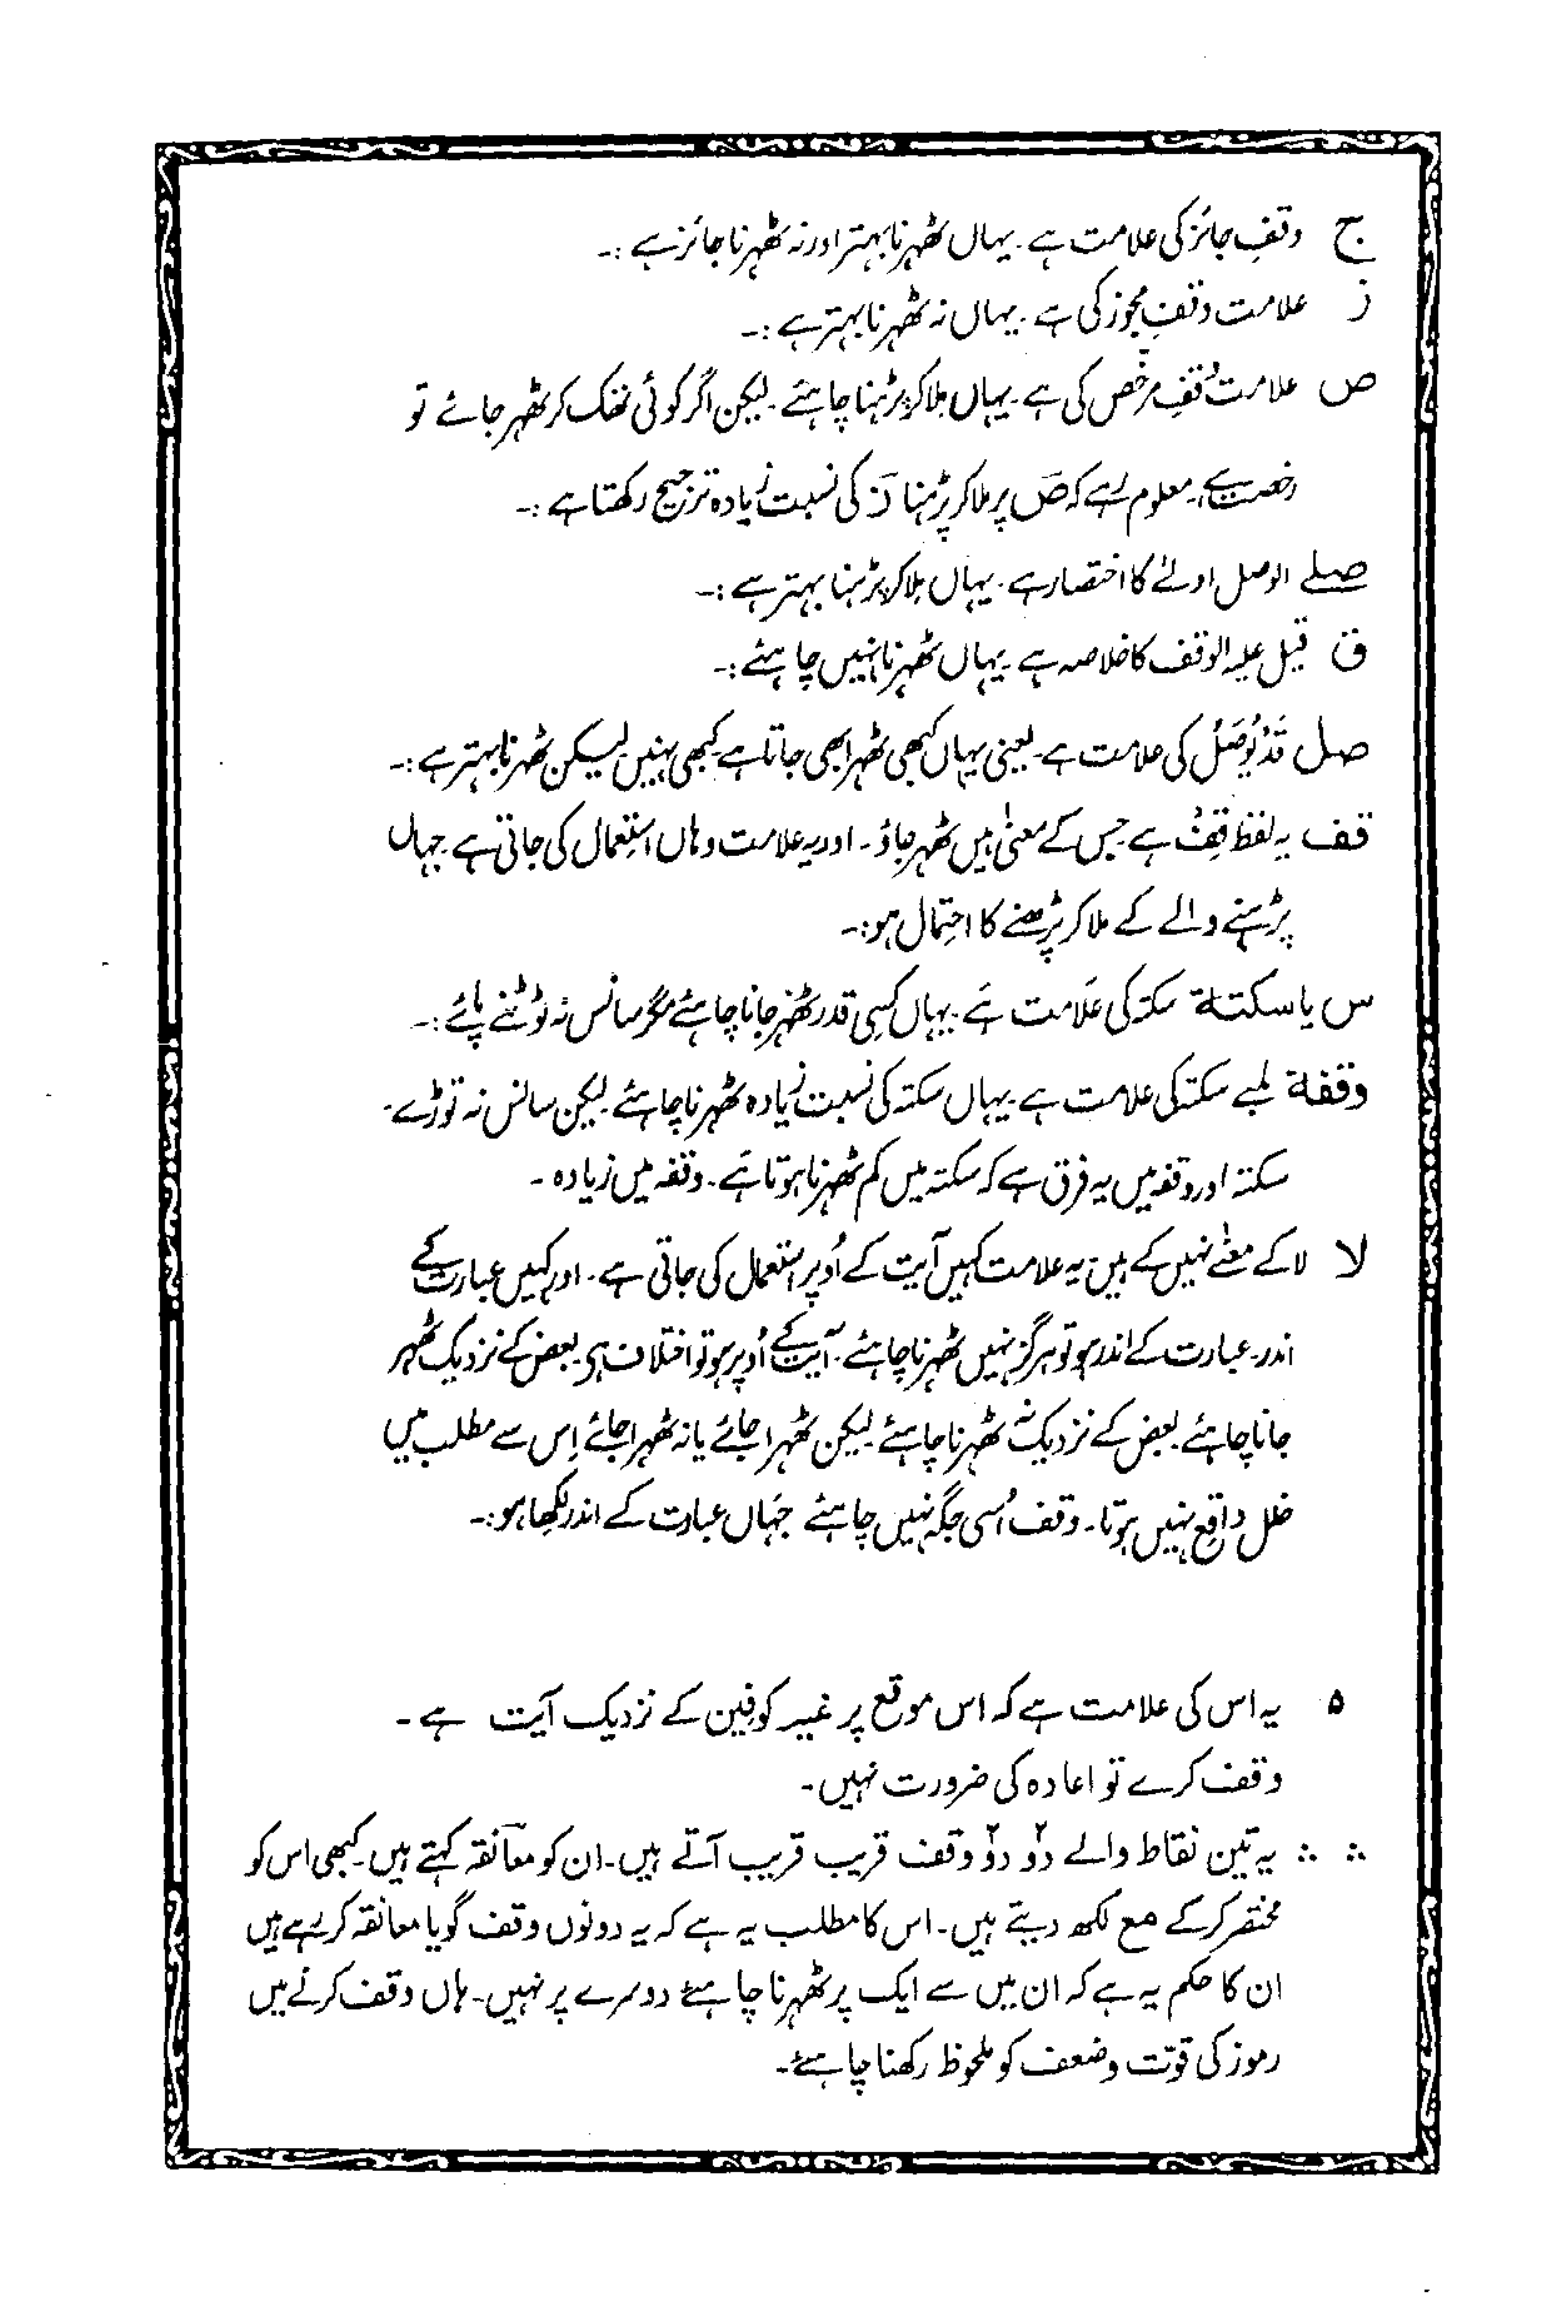 ج وقفِ جائز کی علامت ہے۔ یہاں ٹھہرنا بہتر اور نہ ٹھہرنا جائز ہے :۔
ز علامت وقفِ مجوز کی ہے۔ یہاں نہ ٹھہرنا بہتر ہے :۔
ص علامت وقفِ مرخص کی ہے۔ یہاں ملا کر پڑہنا چاہئے۔ لیکن اگر کوئی تھک کر ٹھہر جائے تو
رخصت ہے۔ معلوم رہے کہ صَ پر ملا کر پڑہنا زَ کی نسبت زیادہ ترجیح رکھتا ہے :۔
صلے الوصل اولےٰ کا اختصار ہے۔ یہاں ملا کر پڑہنا بہتر ہے :۔
ق قیل علیہ الوقف کا خلاصہ ہے۔ یہاں ٹھہرنا نہیں چاہئے :۔
صل قَدْ یُوصَلُ کی علامت ہے۔ یعنی یہاں کبھی ٹھہرا بھی جاتا ہے کبھی نہیں لیکن ٹھہرنا بہتر ہے :۔
قف یہ لفظ قِفْ ہے جس کے معنیٰ ہیں ٹھہر جاؤ۔ اور یہ علامت وہاں استِعمال کی جاتی ہے۔ جہاں
پڑہنے والے کے ملا کر پڑھنے کا احتِمال ہو :۔
س یا سکتة سکتہ کی عَلامت ہَے۔ یہاں کسِی قدر ٹھہر جانا چاہئے مگر سانس نہ ٹوٹنے پائے :۔
وقفة لمبے سکتہ کی علامت ہے۔ یہاں سکتہ کی نسبت زیادہ ٹھہرنا چاہئے لیکن سانس نہ توڑے۔
سکتہ اور وقفہ میں یہ فرق ہے کہ سکتہ میں کم ٹھہرنا ہوتا ہَے۔ وقفہ میں زیادہ ۔
لا لا کے معنےٰ نہیں کے ہیں یہ علامت کہیں آیت کے اُوپر استعمال کی جاتی ہے۔ اور کہیں عبارت کے
اندر۔ عبارت کے اندر ہو تو ہرگز نہیں ٹھہرنا چاہئے۔ آیت کے اُوپر ہو تو اختلاف ہی۔ بعض کے نزدیک ٹھہر
جانا چاہئے بعض کے نزدیک نہ ٹھہرنا چاہئے لیکن ٹھہرا جائے یا نہ ٹھہرا جائے اِس سے مطلب میں
خلل واقع نہیں ہوتا۔ وقف اُسی جگہ نہیں چاہئے جہَاں عبارت کے اندر لکھا ہو :۔
۵ یہ اس کی علامت ہے کہ اس موقع پر غیر کوفِین کے نزدیک آیت ہے ۔
وقف کرے تو اعادہ کی ضرورت نہیں۔
∴ ∴ یہ تین نقاط والے دو۲ دو۲ وقف قریب قریب آتے ہیں۔ ان کو معانقہ کہتے ہیں۔ کبھی اس کو
مختصر کر کے مع لکھ دیتے ہیں۔ اس کا مطلب یہ ہے کہ یہ دونوں وقف گویا معانقہ کر رہے ہیں
ان کا حکم یہ ہے کہ ان میں سے ایک پر ٹھہرنا چاہئے دوسرے پر نہیں۔ ہاں وقف کرنے میں
رموز کی قوّت و ضعف کو ملحوظ رکھنا چاہئے۔